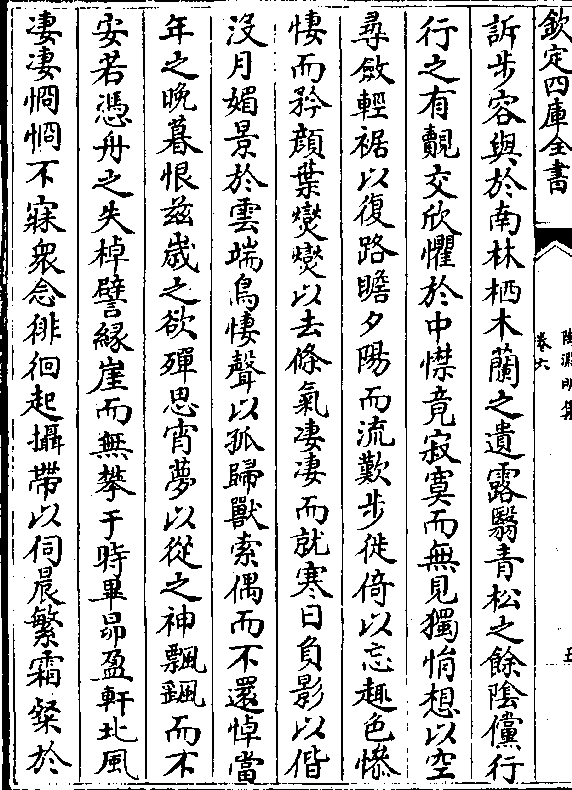 欽定四庫全書
陶淵明集
卷六
五
訴步容與於南林栖木蘭之遺露翳青松之餘隂儻行
行之有覿交欣懼於中襟竟寂寞而無見獨悁想以空
尋斂輕裾以復路瞻夕陽而流歎步徙倚以忘趣色慘
悽而矜顔葉爕爕以去條氣凄凄而就寒日負影以偕
沒月媚景於雲端鳥悽聲以孤歸獸索偶而不還悼當
年之晚暮恨兹歲之欲殫思宵夢以從之神飄飖而不
安若憑舟之失棹譬緣崖而無攀于時畢昴盈軒北風
凄凄惘惘不寐衆念徘徊起攝帶以伺晨繁霜粲於